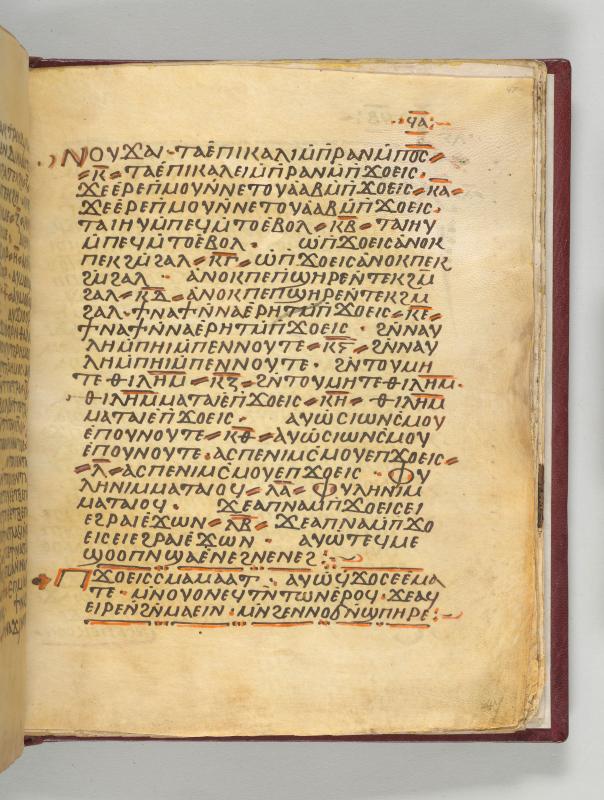 ϥⲁ
ⲛⲟⲩϫⲁⲓ · ⲧⲁⲉⲡⲓⲕⲁⲗⲓⲙ̅ⲡⲣⲁⲛⲙ̅ⲡⲟ̅ⲥ̅
ⲕ̅ · ⲧⲁⲉⲡⲓⲕⲁⲗⲉⲓⲙ̅ⲡⲣⲁⲛⲙ̅ⲡ̅ϫⲟⲉⲓⲥ ·
ϫⲉⲉⲣⲉⲡⲙⲟⲩⲛ̅ⲛⲉⲧⲟⲩⲁⲁⲃⲙ̅ⲡ̅ϫⲟⲉⲓⲥ ⲕ̅ⲁ̅
ϫⲉⲉⲣⲉⲡⲙⲟⲩⲛ̅ⲛⲉⲧⲟⲩⲁⲁⲃⲙ̅ⲡ̅ϫⲟⲉⲓⲥ ·
ⲧⲁⲓⲏⲩⲙ̅ⲡⲉϥⲙ̅ⲧⲟⲉⲃⲟⲗ ⲕ̅ⲃ̅ ⲧⲁⲓⲏⲩ
ⲙ̅ⲡⲉϥⲙ̅ⲧⲟⲉⲃⲟⲗ · ⲱⲡ̅ϫⲟⲉⲓⲥⲁⲛⲟⲕ
ⲡⲉⲕϩⲙ̅ϩⲁⲗ ⲕ̅ⲅ̅ ⲱⲡ̅ϫⲟⲉⲓⲥⲁⲛⲟⲕⲡⲉⲕ
ϩⲙ̅ϩⲁⲗ · ⲁⲛⲟⲕⲡⲉⲡϣⲏⲣⲉⲛ̅ⲧⲉⲕϩⲙ̅
ϩⲁⲗ ⲕ̅ⲇ̅ ⲁⲛⲟⲕⲡⲉⲡϣⲏⲣⲉⲛ̅ⲧⲉⲕϩⲙ̅
ϩⲁⲗ · ϯⲛⲁϯⲛ̅ⲛⲁⲉⲣⲏⲧⲙ̅ⲡ̅ϫⲟⲉⲓⲥ ⲕ̅ⲉ̅
ϯⲛⲁϯⲛ̅ⲛⲁⲉⲣⲏⲧⲙ̅ⲡ̅ϫⲟⲉⲓⲥ · ϩⲛ̅ⲛⲁⲩ
ⲗⲏⲙ̅ⲡⲏⲓⲙ̅ⲡⲉⲛⲛⲟⲩⲧⲉ ⲕ̅ⲋ̅ ϩⲛ̅ⲛⲁⲩ
ⲗⲏⲙ̅ⲡⲏⲓⲙ̅ⲡⲉⲛⲛⲟⲩⲧⲉ · ϩⲛ̅ⲧⲟⲩⲙⲏ
ⲧⲉ ⲑⲓ̅ⲗ̅ⲏ̅ⲙ̅ ⲕ̅ⲍ̅ ϩⲛ̅ⲧⲟⲩⲙⲏⲧⲉ ⲑⲓ̅ⲗ̅ⲏ̅ⲙ̅ ·
ⲑⲓ̅ⲗ̅ⲏ̅ⲙ̅ⲙⲁⲧⲁⲓⲉⲡ̅ϫⲟⲉⲓⲥ ⲕ̅ⲏ̅ ⲑⲓ̅ⲗ̅ⲏ̅ⲙ̅
ⲙⲁⲧⲁⲓⲉⲡ̅ϫⲟⲉⲓⲥ · ⲁⲩⲱⲥⲓⲱⲛⲥ̅ⲙⲟⲩ
ⲉⲡⲟⲩⲛⲟⲩⲧⲉ ⲕ̅ⲑ̅ ⲁⲩⲱⲥⲓⲱⲛⲥ̅ⲙⲟⲩ
ⲉⲡⲟⲩⲛⲟⲩⲧⲉ · ⲁⲥⲡⲉⲛⲓⲙⲥ̅ⲙⲟⲩⲉⲡϫⲟⲉⲓⲥ
ⲗ̅ ⲁⲥⲡⲉⲛⲓⲙⲥ̅ⲙⲟⲩⲉⲡϫⲟⲉⲓⲥ · ⲫⲩ
ⲗⲏⲛⲓⲙⲙⲁⲧⲁⲓⲟϥ ⲗ̅ⲁ̅ ⲫⲩⲗⲏⲛⲓⲙ
ⲙⲁⲧⲁⲓⲟϥ · ϫⲉⲁⲡⲛⲁⲙ̅ⲡ̅ϫⲟⲉⲓⲥⲉⲓ
ⲉϩⲣⲁⲓⲉϫⲱⲛ ⲗ̅ⲃ̅ ϫⲉⲁⲡⲛⲁⲙ̅ⲡ̅ϫⲟ
ⲉⲓⲥⲉⲓⲉϩⲣⲁⲓⲉϫⲱⲛ · ⲁⲩⲱⲧⲉϥⲙⲉ
ϣⲟⲟⲡⲛ̅ϣⲁⲉⲛⲉϩⲛⲉⲛⲉϩ :
ⲡϫⲟⲉⲓⲥⲥⲙⲁⲙⲁⲁⲧ · ⲁⲩⲱϥϫⲟⲥⲉⲉⲙⲁ
ⲧⲉ · ⲙⲛ̅ⲟⲩⲟⲛⲉϥⲧⲛ̅ⲧⲱⲛⲉⲣⲟϥ · ϫⲉⲁϥ
ⲉⲓⲣⲉⲛ̅ϩⲛ̅ⲙⲁⲉⲓⲛ · ⲙⲛ̅ϩⲉⲛⲛⲟϭⲛ̅ϣⲡⲏⲣⲉ :